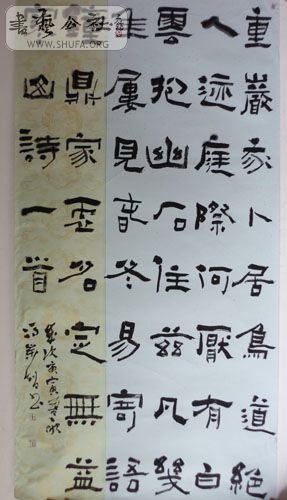 重巖我卜居鳥道絕
人迹庭際何所有白
雲抱幽石住茲凡幾
年屢見春冬易寄語
鐘鼎家虛名定無益
寒山詩一首
歲次庚寅
書藝公社
WWW.SHUFA.ORG